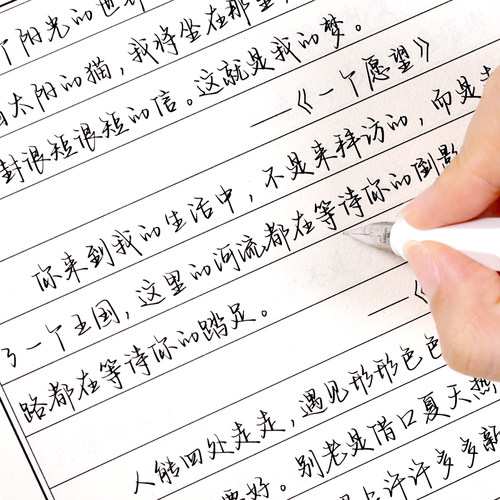 个阳光的世界
太阳的猫，我将坐在那里，
封很短很短的信。这就是我的梦。
——《一个愿望》
你来到我的生活中，不是来拜访的，而是
了一个王国，这里的河流都在等待你的倒影
路都在等待你的踏足。
——《
人能四处走走，遇见形形色色
要好。别老是借口夏天热，
上许许多多新